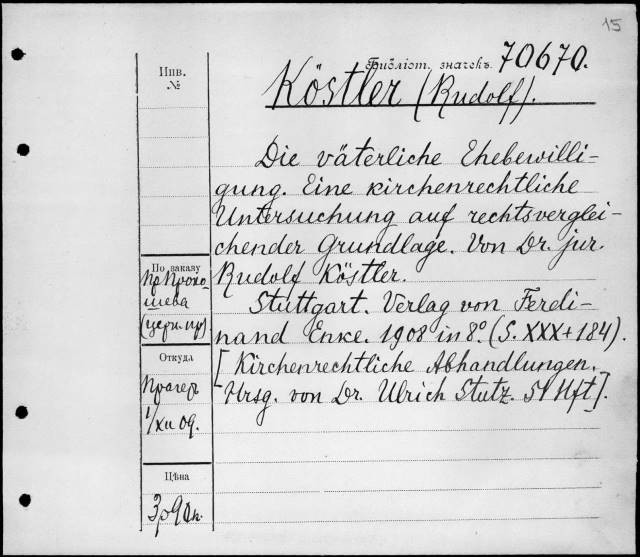 15
Библіот. значекъ 70670.
Köstler (Rudolf).
Die väterliche Ehebewilli-
gung. Eine kirchenrechtliche
Untersuchung auf rechtsverglei-
chender Grundlage. Von Dr. jur.
Rudolf Köstler.
Stuttgart. Verlag von Ferdi-
nand Enke. 1908 in 8º. (S. XXX+184).
[Kirchenrechtliche Abhandlungen.
Hrsg. von Dr. Ulrich Stutz. 51 Hft].
Инв.
№
По заказу
пр. Прохо-
шева
(церк. пр)
Откуда
Прагеръ
1/XII 09.
Цѣна
3 р 90 к.